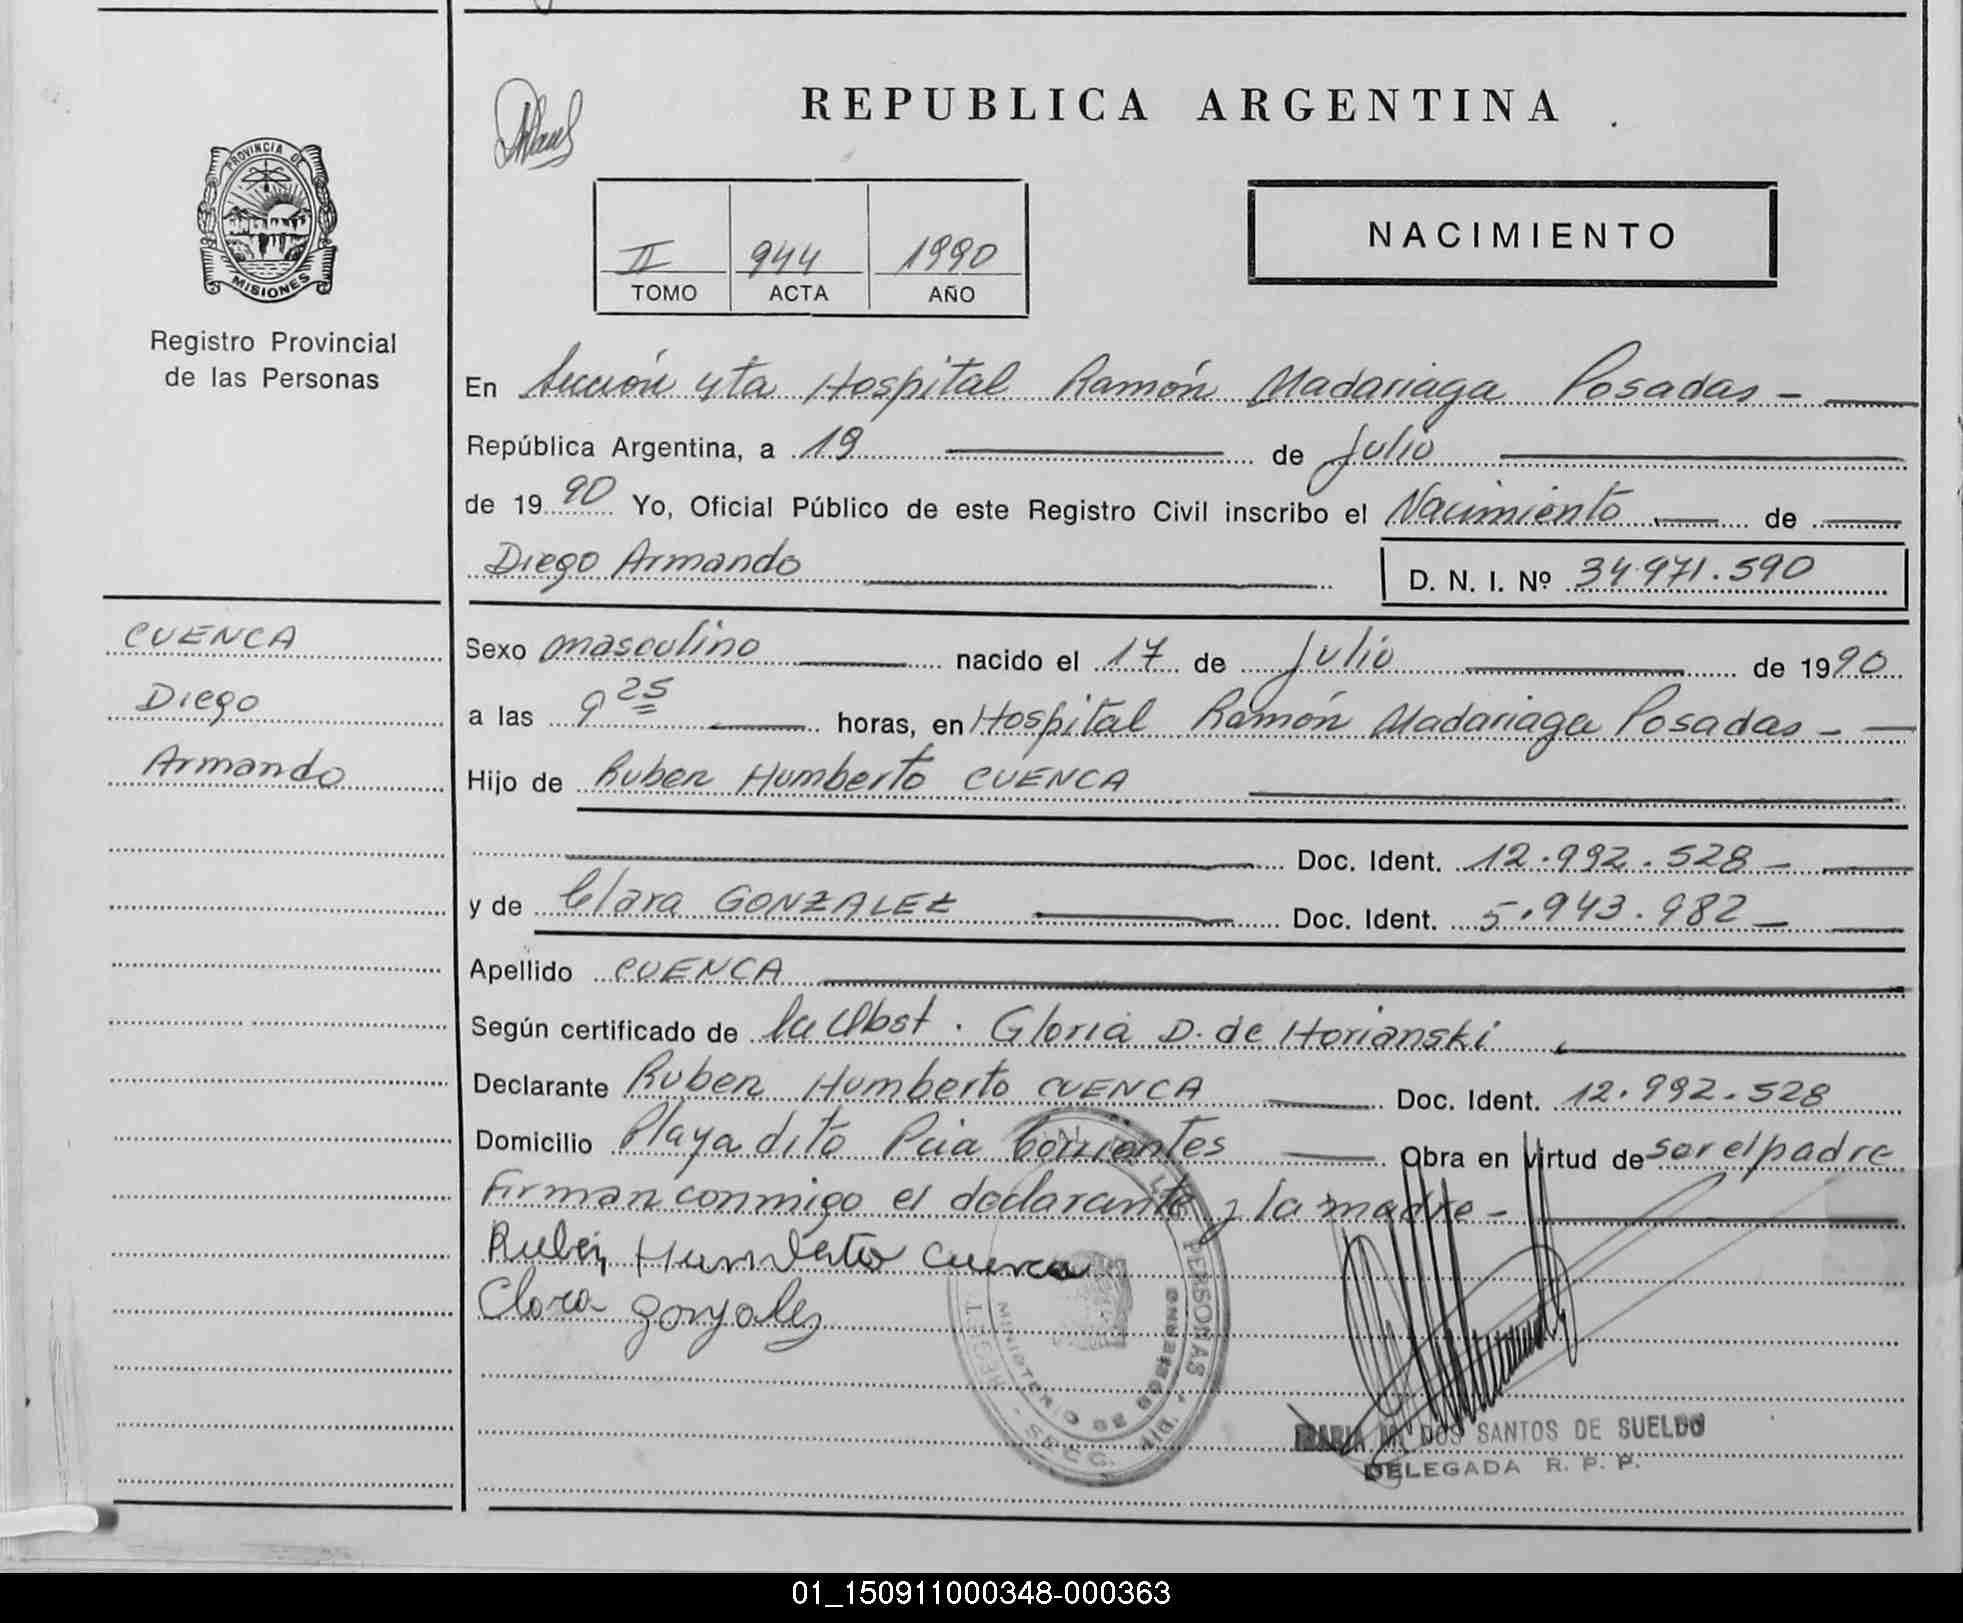 REPUBLICA ARGENTINA
PROVINCIA DE
MISIONES
Registro Provincial
de las Personas
II 944 1990
TOMO ACTA AÑO
NACIMIENTO
En Sección 4ta Hospital Ramón Madariaga Posadas -
República Argentina, a 19 de Julio
de 1990 Yo, Oficial Público de este Registro Civil inscribo el Nacimiento de
Diego Armando D. N. I. Nº 34.971.590
CUENCA
Diego
Armando
Sexo masculino nacido el 17 de Julio de 1990
a las 9 25 horas, en Hospital Ramón Madariaga Posadas -
Hijo de Ruben Humberto CUENCA
Doc. Ident. 12.992.528 -
y de Clara GONZALEZ Doc. Ident. 5.943.982 -
Apellido CUENCA
Según certificado de la Obst. Gloria D. de Horianski
Declarante Ruben Humberto CUENCA Doc. Ident. 12.992.528
Domicilio Playadito Pcia Corrientes Obra en virtud de ser el padre
Firman conmigo el declarante y la madre -
Ruben Humberto Cuenca
Clara Gonzalez
PERSONAS
MINISTERIO DE GOBIERNO
SECC.
MARIA M. DOS SANTOS DE SUELDO
DELEGADA R. P. P.
01_150911000348-000363